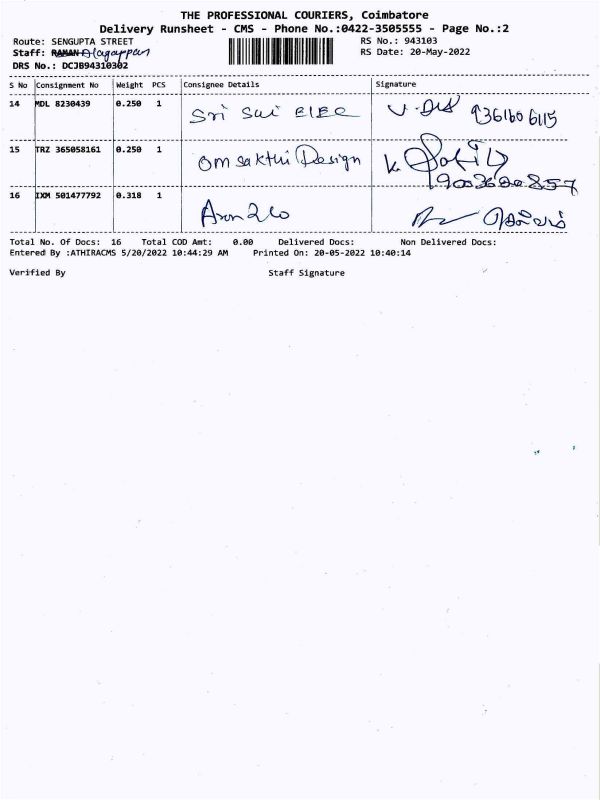 THE PROFESSIONAL COURIERS, Coimbatore
Delivery Runsheet - CMS - Phone No.:0422-3505555 - Page No.:2
Route: SENGUPTA STREET
RS No.: 943103
Staff: RAMAN Alagappan
RS Date: 20-May-2022
DRS No.: DCJB94310302
S No Consignment No Weight PCS Consignee Details Signature
14 MDL 8230439 0.250 1 Sri Sai Elec 9361606115
15 TRZ 365058161 0.250 1 Om sakthi Design K.
9003680857
16 IXM 501477792 0.318 1
Total No. Of Docs: 16 Total COD Amt: 0.00 Delivered Docs: Non Delivered Docs:
Entered By :ATHIRACMS 5/20/2022 10:44:29 AM Printed On: 20-05-2022 10:40:14
Verified By Staff Signature